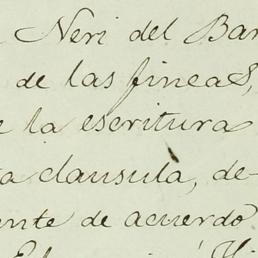 Neri del Bar
de las fincas,
e la escritura
ta clausula, de-
ente de acuerdo